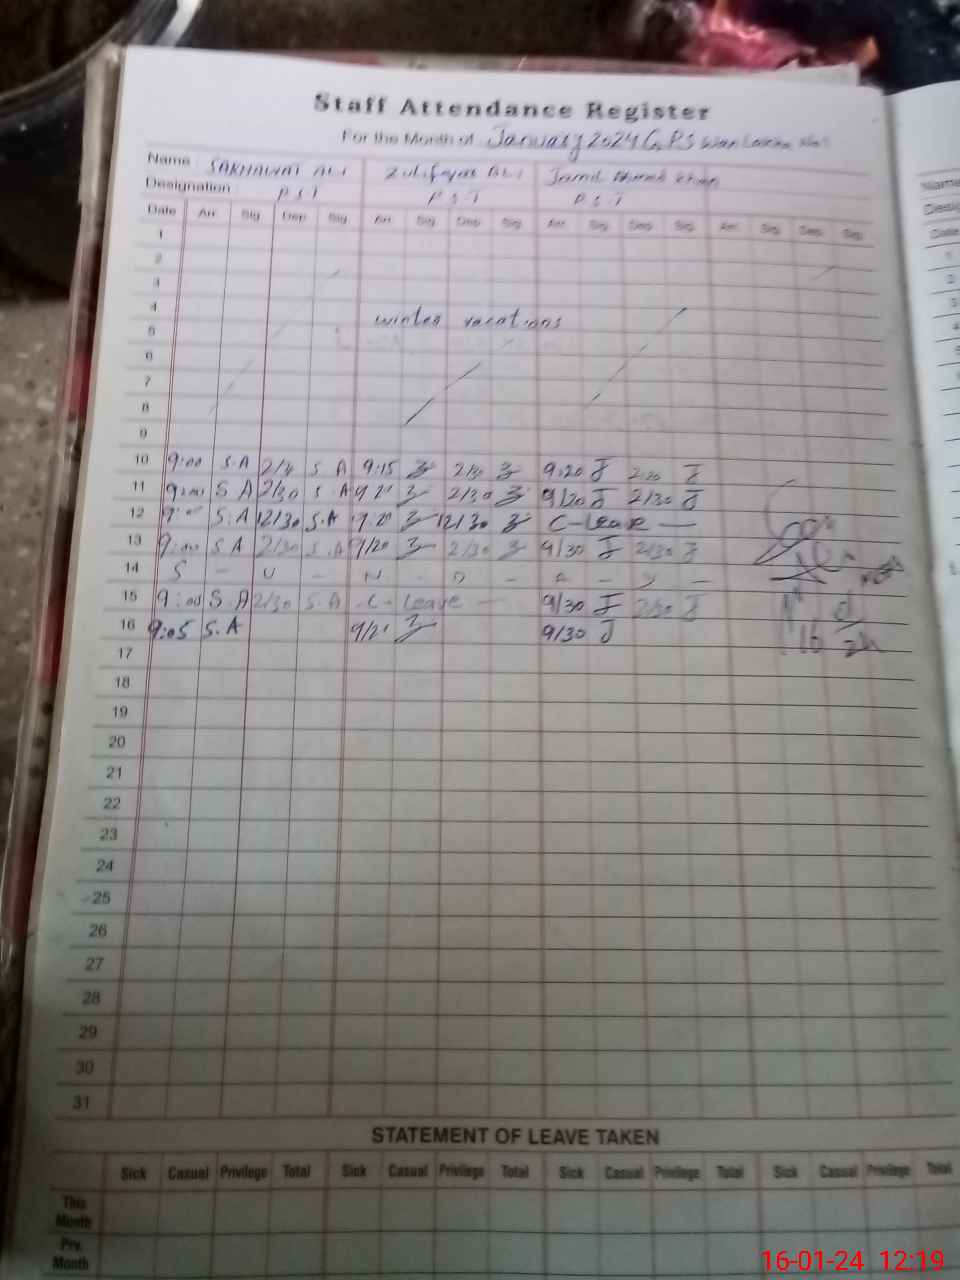 Staff Attendance Register
For the Month of January 2024 G.P.S
Name SAKHAWAT ALI Zulifqar ALI Jamil Ahmed Khan
Designation P S T P S T P.S.T
Date Arr. Sig Dep Sig Arr. Sig Dep Sig Arr. Sig Dep Sig Arr. Sig Dep Sig
1
2
3
4
winter vacations
5
6
7
8
9
10 9:00 S.A S.A 9:15 2/30 9:20 J 2:30 J
11 9:00 S A 2/30 S.A 2/30 9/20 J 2/30 J
12 S.A 12/30 S.A 12/30 C-Leave —
13 9:00 S A 2/30 S.A 9/20 2/30 9/30 J 2/30 J
14 S – U – N – D – A – Y –
15 9:00 S.A 2/30 S.A C- Leave — 9/30 J 2/30 J
16 9:05 S.A 9/30 J
17
18
19
20
21
22
23
24
25
26
27
28
29
30
31
STATEMENT OF LEAVE TAKEN
Sick Casual Privilege Total Sick Casual Privilege Total Sick Casual Privilege Total Sick Casual Privilege Total
This
Month
Prv.
Month
16-01-24 12:19